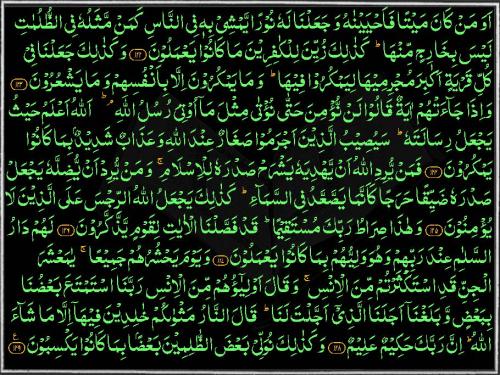 اَوَ مَنْ كَانَ مَيْتًا فَاَحْيَيْنٰهُ وَ جَعَلْنَا لَهٗ نُوْرًا يَّمْشِيْ بِهٖ فِي النَّاسِ كَمَنْ مَّثَلُهٗ فِي الظُّلُمٰتِ
لَيْسَ بِخَارِجٍ مِّنْهَا ؕ كَذٰلِكَ زُيِّنَ لِلْكٰفِرِيْنَ مَا كَانُوْا يَعْمَلُوْنَ ﴿۱۲۲﴾ وَ كَذٰلِكَ جَعَلْنَا فِيْ
كُلِّ قَرْيَةٍ اَكٰبِرَ مُجْرِمِيْهَا لِيَمْكُرُوْا فِيْهَا ؕ وَ مَا يَمْكُرُوْنَ اِلَّا بِاَنْفُسِهِمْ وَ مَا يَشْعُرُوْنَ ﴿۱۲۳﴾
وَ اِذَا جَآءَتْهُمْ اٰيَةٌ قَالُوْا لَنْ نُّؤْمِنَ حَتّٰى نُؤْتٰى مِثْلَ مَاۤ اُوْتِيَ رُسُلُ اللّٰهِ ؔۘؕ اَللّٰهُ اَعْلَمُ حَيْثُ
يَجْعَلُ رِسَالَتَهٗ ؕ سَيُصِيْبُ الَّذِيْنَ اَجْرَمُوْا صَغَارٌ عِنْدَ اللّٰهِ وَ عَذَابٌ شَدِيْدٌۢ بِمَا كَانُوْا
يَمْكُرُوْنَ ﴿۱۲۴﴾ فَمَنْ يُّرِدِ اللّٰهُ اَنْ يَّهْدِيَهٗ يَشْرَحْ صَدْرَهٗ لِلْاِسْلَامِ ۚ وَ مَنْ يُّرِدْ اَنْ يُّضِلَّهٗ يَجْعَلْ
صَدْرَهٗ ضَيِّقًا حَرَجًا كَاَنَّمَا يَصَّعَّدُ فِي السَّمَآءِ ؕ كَذٰلِكَ يَجْعَلُ اللّٰهُ الرِّجْسَ عَلَى الَّذِيْنَ لَا
يُؤْمِنُوْنَ ﴿۱۲۵﴾ وَ هٰذَا صِرَاطُ رَبِّكَ مُسْتَقِيْمًا ؕ قَدْ فَصَّلْنَا الْاٰيٰتِ لِقَوْمٍ يَّذَّكَّرُوْنَ ﴿۱۲۶﴾ لَهُمْ دَارُ
السَّلٰمِ عِنْدَ رَبِّهِمْ وَ هُوَ وَلِيُّهُمْ بِمَا كَانُوْا يَعْمَلُوْنَ ﴿۱۲۷﴾ وَ يَوْمَ يَحْشُرُهُمْ جَمِيْعًا ۚ يٰمَعْشَرَ
الْجِنِّ قَدِ اسْتَكْثَرْتُمْ مِّنَ الْاِنْسِ ۚ وَ قَالَ اَوْلِيٰٓؤُهُمْ مِّنَ الْاِنْسِ رَبَّنَا اسْتَمْتَعَ بَعْضُنَا
بِبَعْضٍ وَّ بَلَغْنَاۤ اَجَلَنَا الَّذِيْۤ اَجَّلْتَ لَنَا ؕ قَالَ النَّارُ مَثْوٰىكُمْ خٰلِدِيْنَ فِيْهَاۤ اِلَّا مَا شَآءَ
اللّٰهُ ؕ اِنَّ رَبَّكَ حَكِيْمٌ عَلِيْمٌ ﴿۱۲۸﴾ وَ كَذٰلِكَ نُوَلِّيْ بَعْضَ الظّٰلِمِيْنَ بَعْضًۢا بِمَا كَانُوْا يَكْسِبُوْنَ ﴿۱۲۹﴾ ع